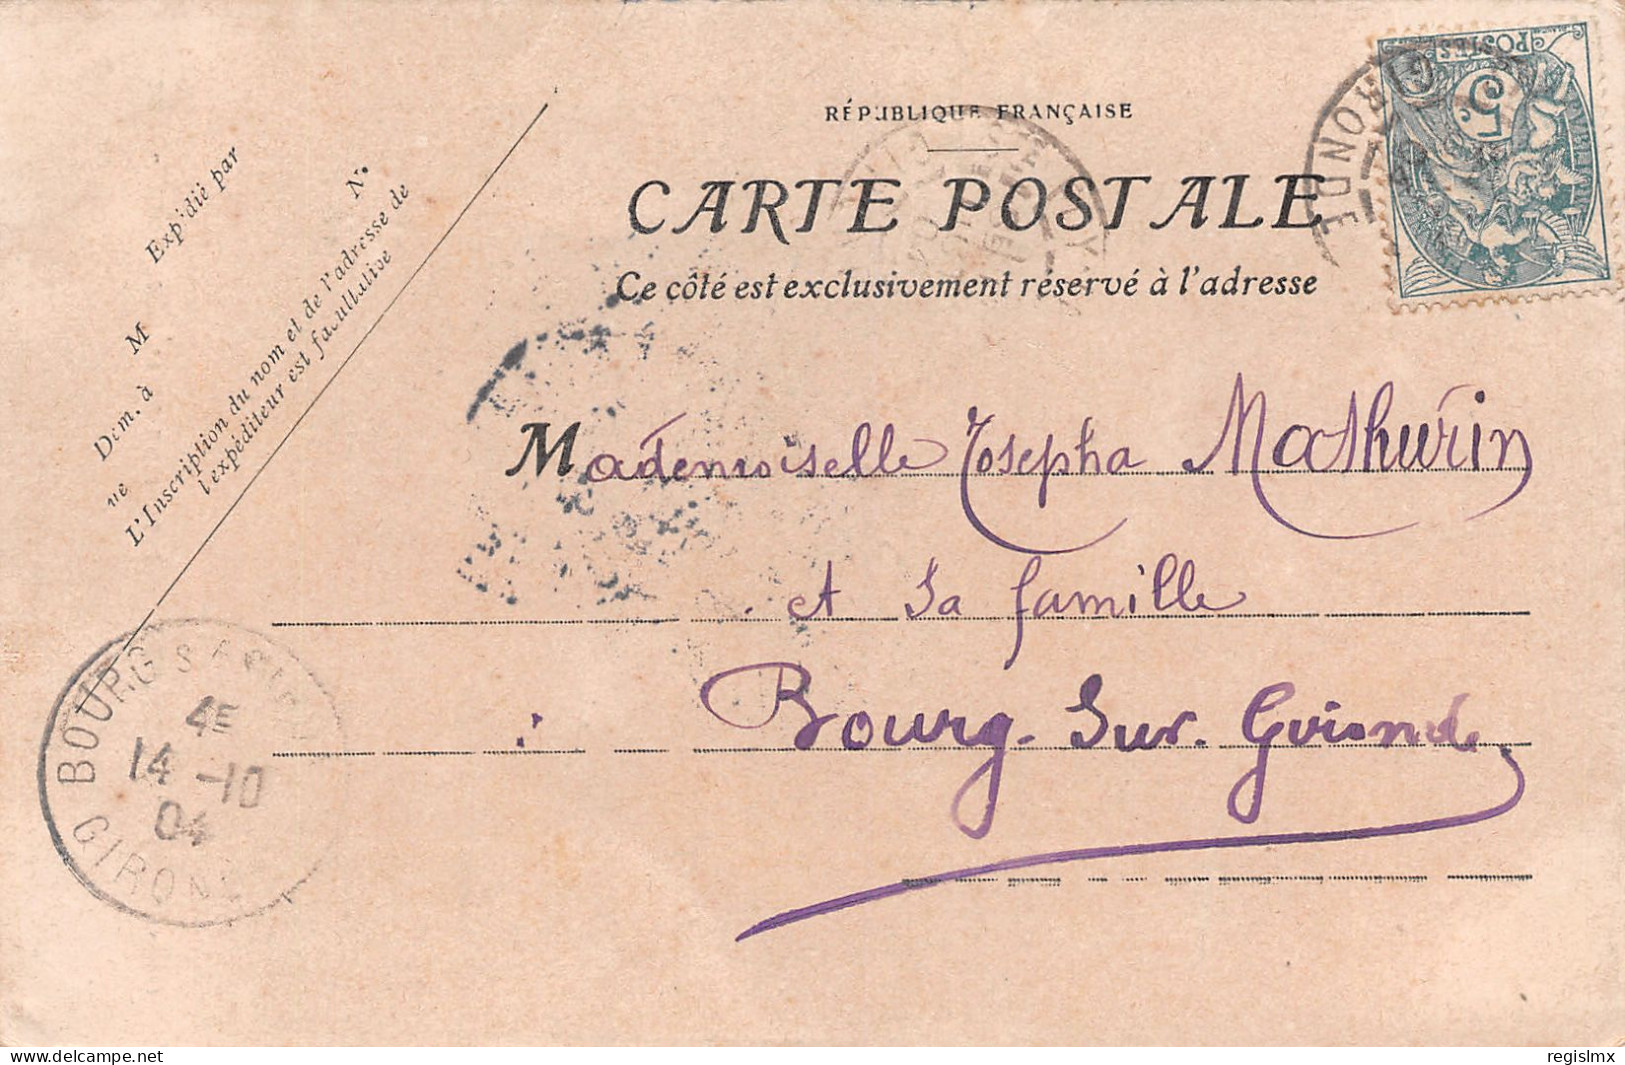 RÉPUBLIQUE FRANÇAISE
CARTE POSTALE
Ce côté est exclusivement réservé à l'adresse
Expédié par
M
N°
Dem. à
L'Inscription du nom et de l'adresse de
l'expéditeur est facultative
POSTES
5
GIRONDE
Mademoiselle Josepha Mathurin
et Sa famille
Bourg. Sur. Gironde
BOURG S
4E
14 -10
04
GIRON
delcampe.net
regislmx